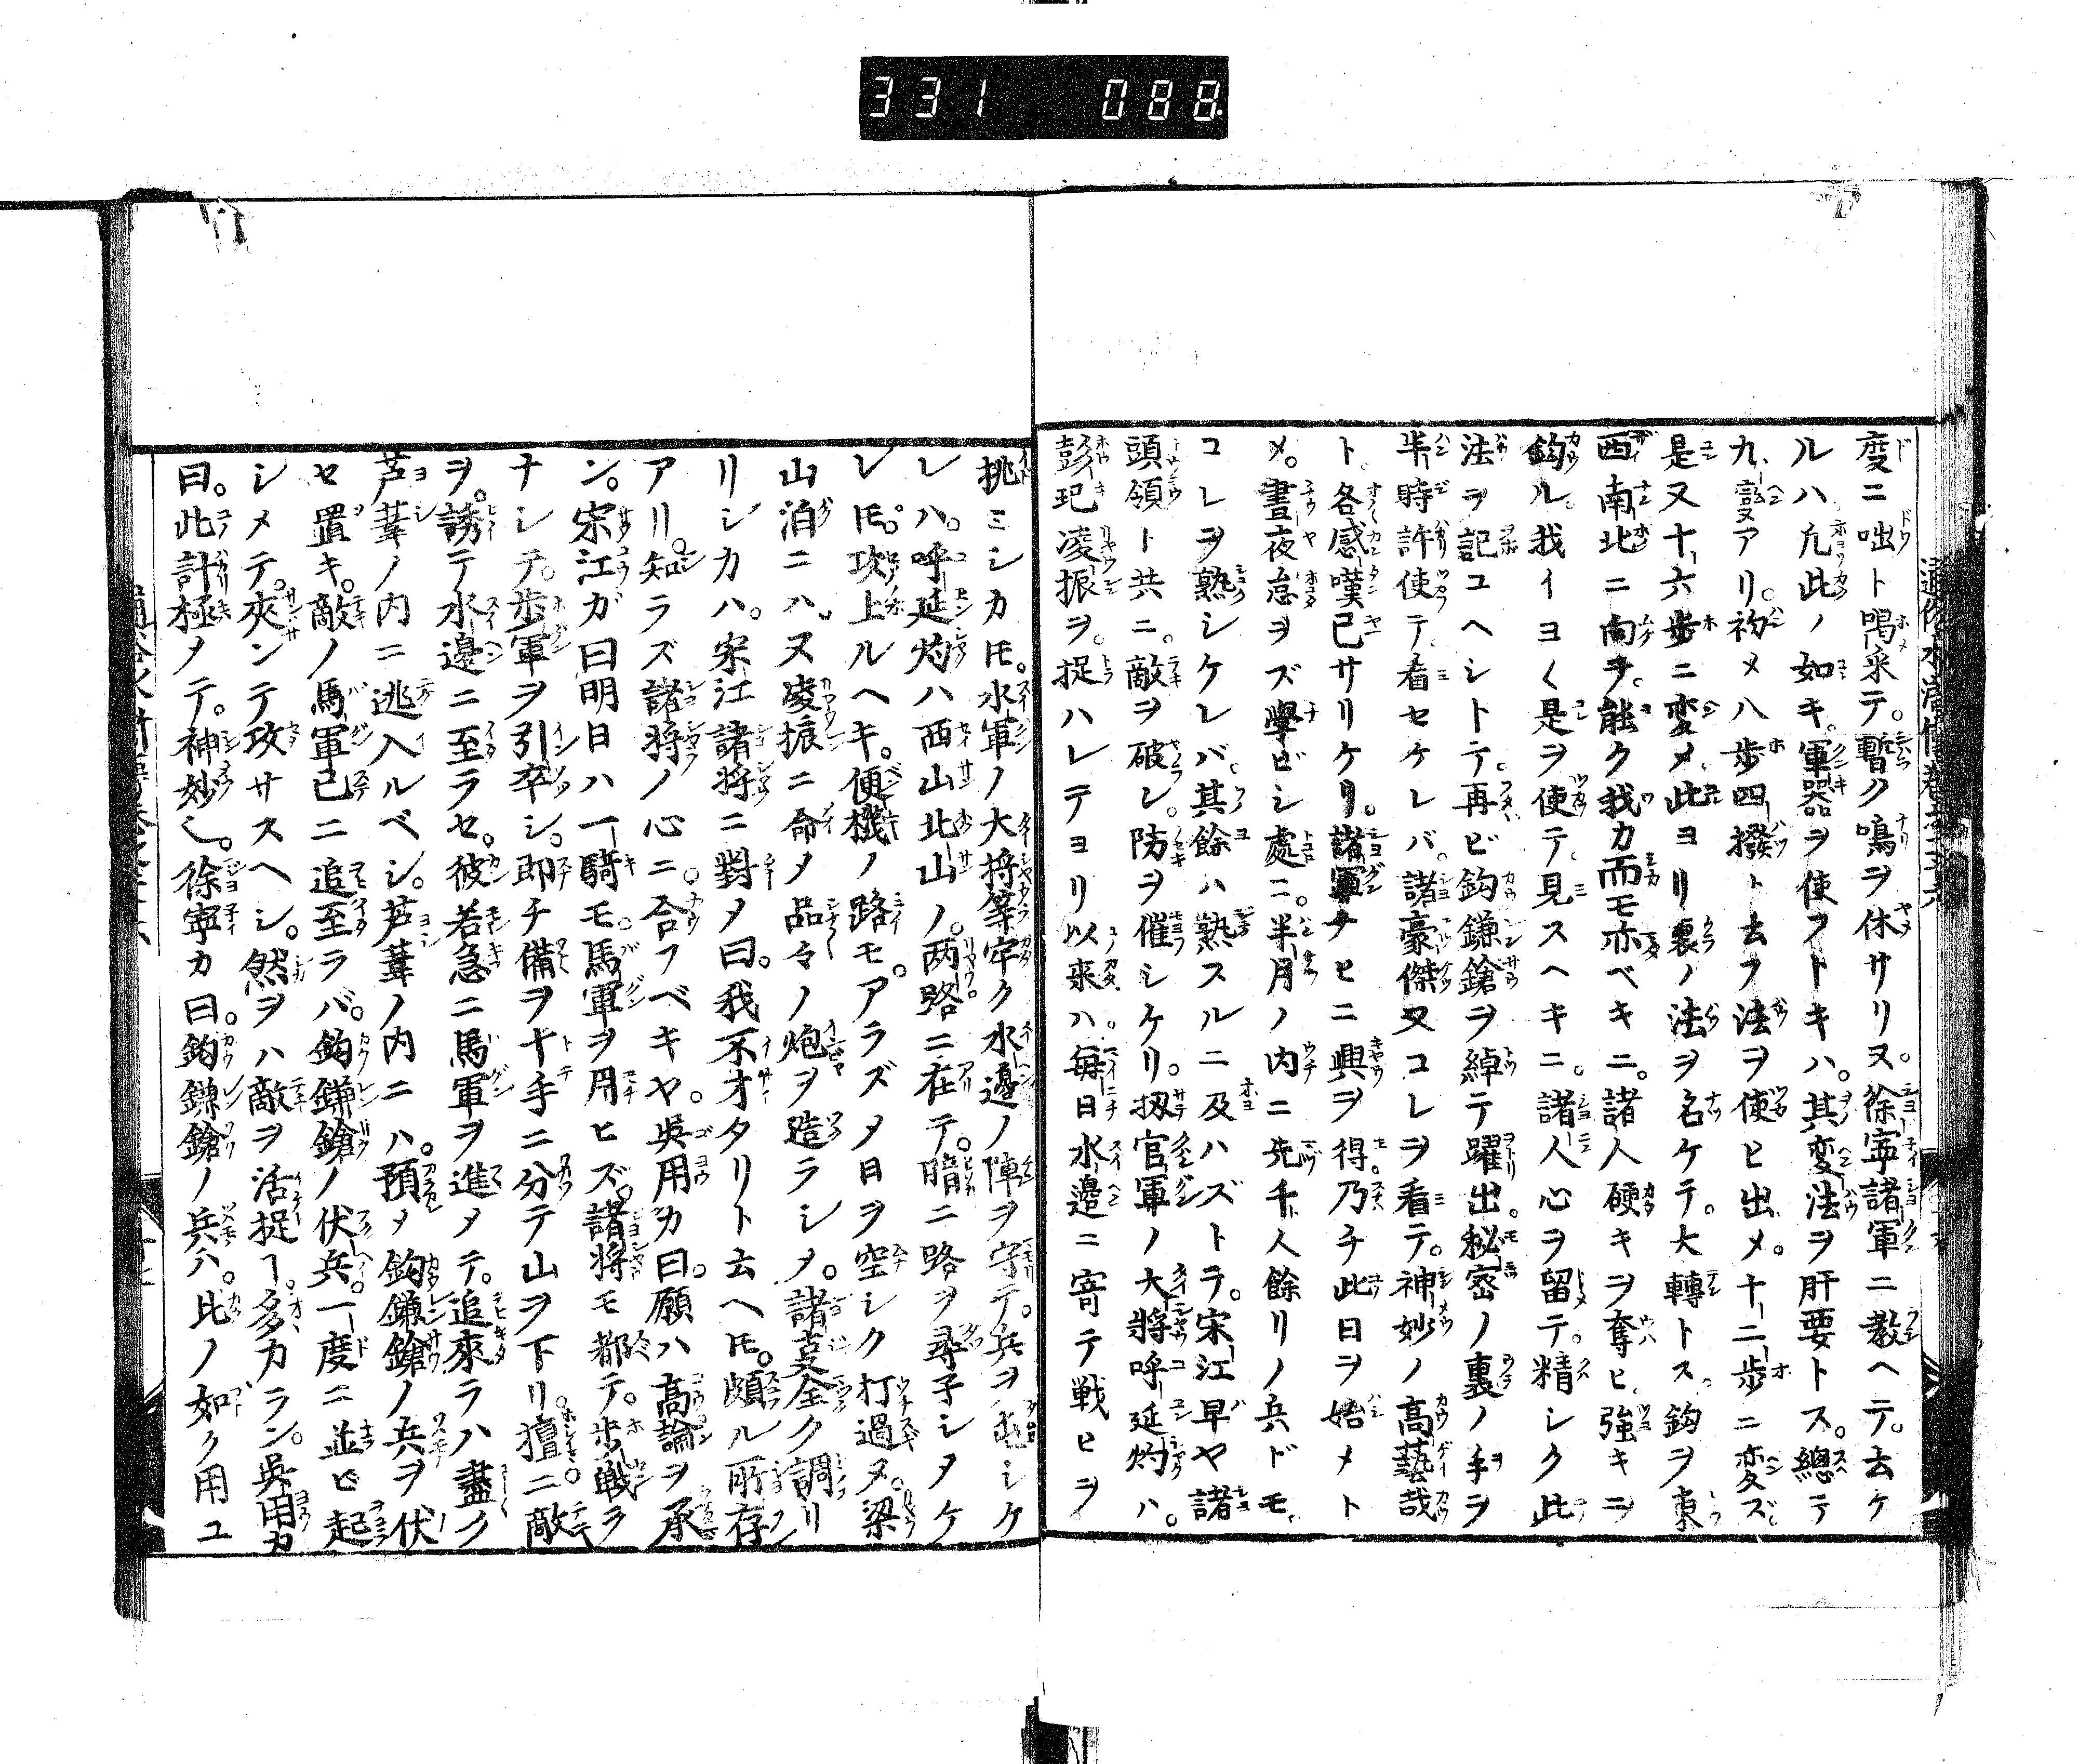 331 088
度ニ咄ト喝采テ。暫ク鳴ヲ休サリヌ。徐寧諸軍ニ教ヘテ。云ケ
ルハ凢此ノ如キ。軍器ヲ使フトキハ。其変法ヲ肝要トス。總テ
九変アリ。初メ八歩四撥ト去フ法ヲ使ヒ出メ。十二歩ニ変ズ
是又十六歩ニ変メ此ヨリ裏ノ法ヲ名ケテ。大轉トス。鈎ヲ東
西南北ニ向ヲ。能ク我カ而モ亦ベキニ。諸人硬キヲ奪ヒ。強キニ
鈎ル。我イヨく是ヲ使テ。見スヘキニ。諸人心ヲ留テ。精シク此
法ヲ記ユヘシトテ。再ビ鈎鎌鎗ヲ綽テ躍出。秘密ノ裏ノ手ヲ
半時許使テ。看セケレバ。諸豪傑又コレヲ看テ。神妙ノ高藝哉
ト。各感嘆已サリケリ。諸軍ナヒニ興ヲ得。乃チ此日ヲ始メト
メ。晝夜怠ヲズ學ビシ處ニ。半月ノ内ニ先千人餘リノ兵ドモ
コレヲ熟シケレバ。其餘ハ熟スルニ及ハズトラ。宋江早ヤ諸
頭領ト共ニ。敵ヲ破レ。防ヲ催シケリ。扨官軍ノ大將呼延灼ハ。
彭玘凌振ヲ。捉ハレテヨリ以来ハ。毎日水邉ニ寄テ戦ヒヲ
挑ミシカ𪜈。水軍ノ大将等牢ク水邉ノ陣ヲ守テ。兵ヲ出シケ
レハ。呼延灼ハ西山北山ノ。两路ニ在テ。暗ニ路ヲ尋子シタケ
レ𪜈。攻上ルヘキ。便機ノ路モ。アラズメ日ヲ空シク打過ヌ。梁
山泊ニハ。又凌振ニ命メ品々ノ炮ヲ造ラシメ。諸叓全ク調リ
リシカハ。宋江諸将ニ對メ曰。我不才タリト云ヘ𪜈。頗ル所存
アリ。知ラズ諸将ノ心ニ。合フベキヤ。呉用カ曰。願ハ高論ヲ承
ン。宋江ガ曰明日ハ一騎モ。馬軍ヲ用ヒズ。諸将モ都テ。歩戦ラ
ナシテ。歩軍ヲ引卒シ。即チ備ヲ十手ニ分テ山ヲ下リ。擅ニ敵
ヲ。誘テ水邉ニ至ラセ。彼若急ニ馬軍ヲ進メテ。追來ラハ盡ク
芦葦ノ内ニ逃入ルベシ。芦葦ノ内ニハ。預メ鈎鎌鎗ノ兵ヲ伏
セ置キ。敵ノ馬軍已ニ追至ラバ。鈎鎌鎗ノ伏兵。一度ニ並ヒ起
シメテ。夾ンテ攻サスヘシ。然ヲハ敵ヲ活捉ヿ。多カラン。呉用カ
曰。此計極メテ。神妙也。徐寧カ曰。鈎鎌鎗ノ兵ハ。此ノ如ク用ユ